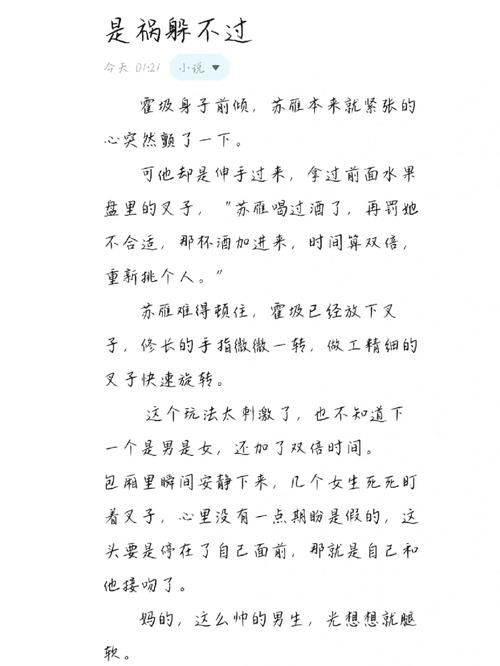 是祸躲不过
今天 01:21 小说 ▼
霍圾身子前倾，苏雁本来就紧张的
心突然颤了一下。
可他却是伸手过来，拿过前面水果
盘里的叉子，“苏雁喝过酒了，再罚她
不合适，那杯酒加进来，时间算双倍，
重新挑个人。”
苏雁难得顿住，霍圾已经放下叉
子，修长的手指微微一转，做工精细的
叉子快速旋转。
这个玩法太刺激了，也不知道下
一个是男是女，还加了双倍时间。
包厢里瞬间安静下来，几个女生死死盯
着叉子，心里没有一点期盼是假的，这
头要是停在了自己面前，那就是自己和
他接吻了。
妈的，这么帅的男生，光想想就腿
软。